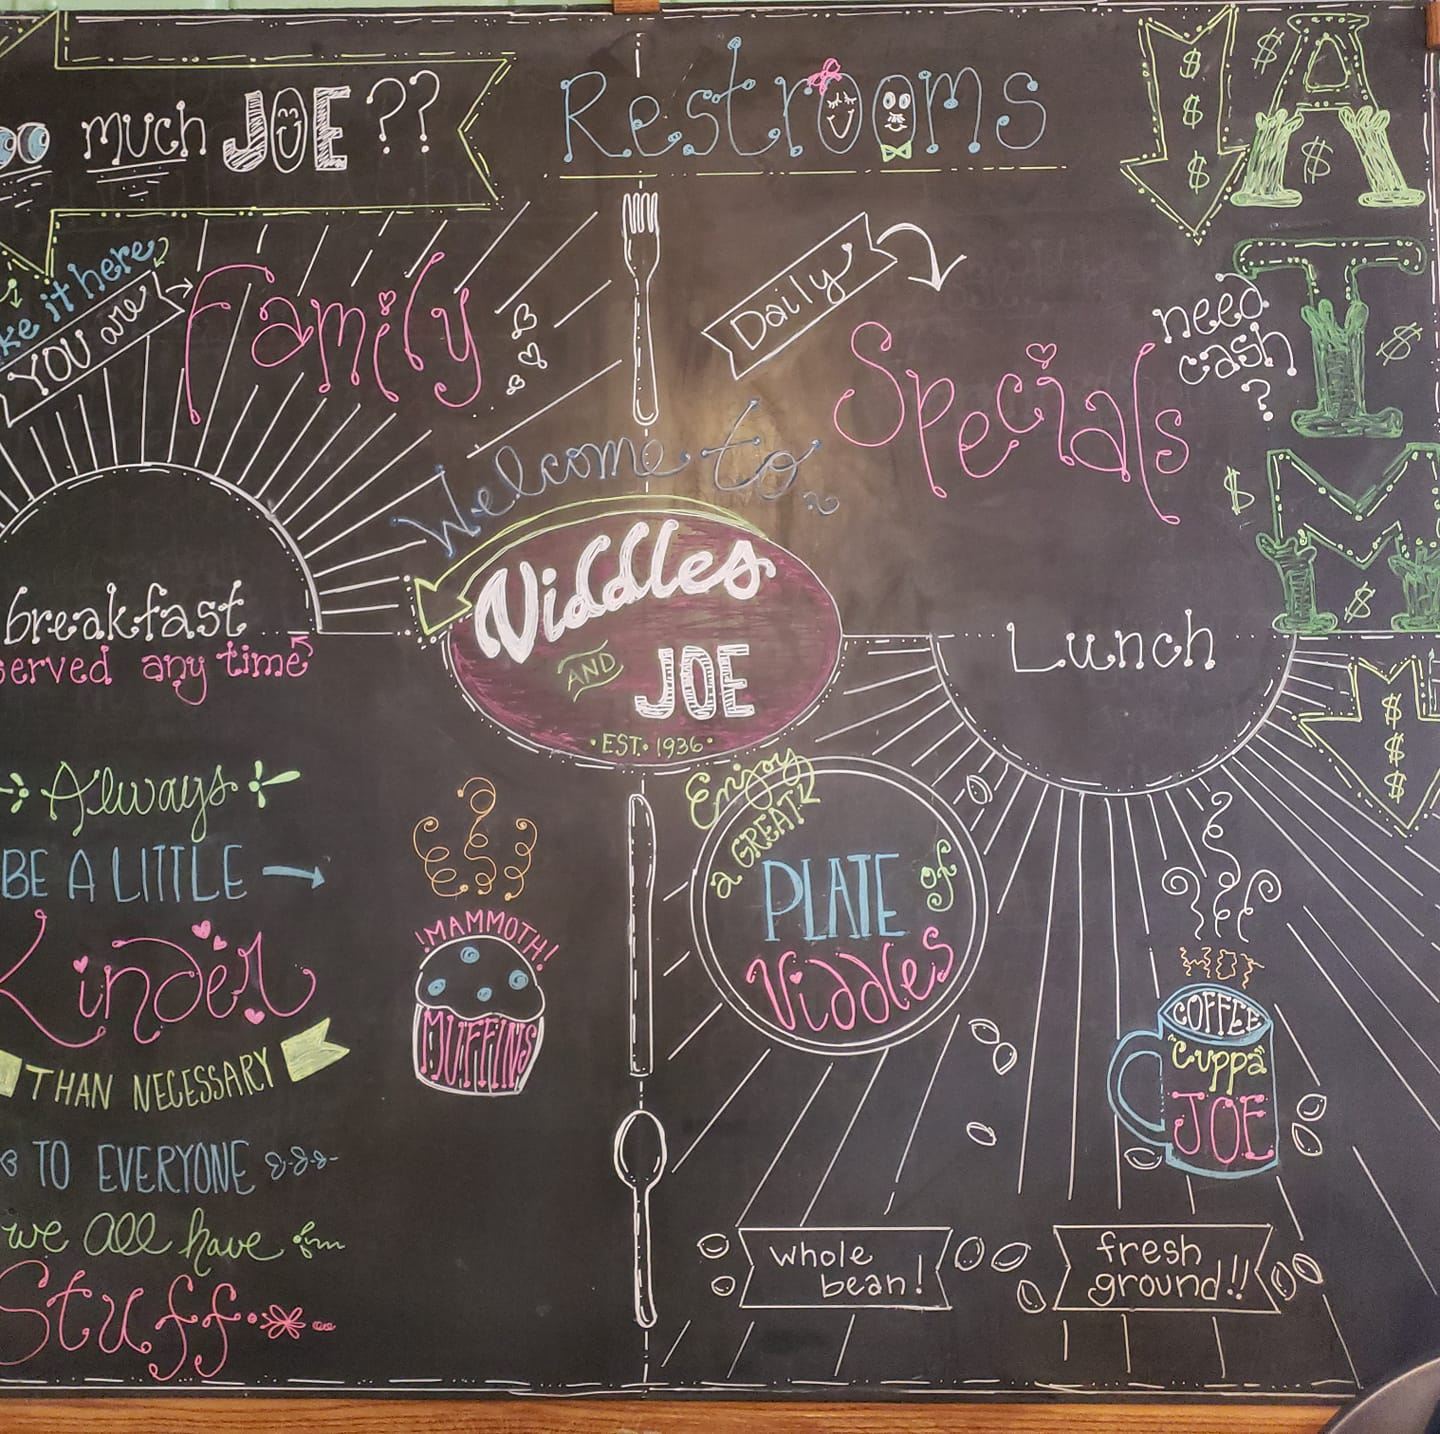 much JOE??
Restrooms
ATM
$
$
$
$
$
need
cash
?
$
$
$
$
$
$
$
it here
YOU are
Family
Daily
Specials
Welcome to
Viddles
AND
JOE
• EST • 1936 •
breakfast
served any time
Lunch
Always
BE A LITTLE
Kinder
THAN NECESSARY
TO EVERYONE
we all have
Stuff
!MAMMOTH!
MUFFINS
Enjoy
a GREAT
PLATE
of
Viddles
HOT
COFFEE
"Cuppa"
JOE
whole
bean!
fresh
ground!!